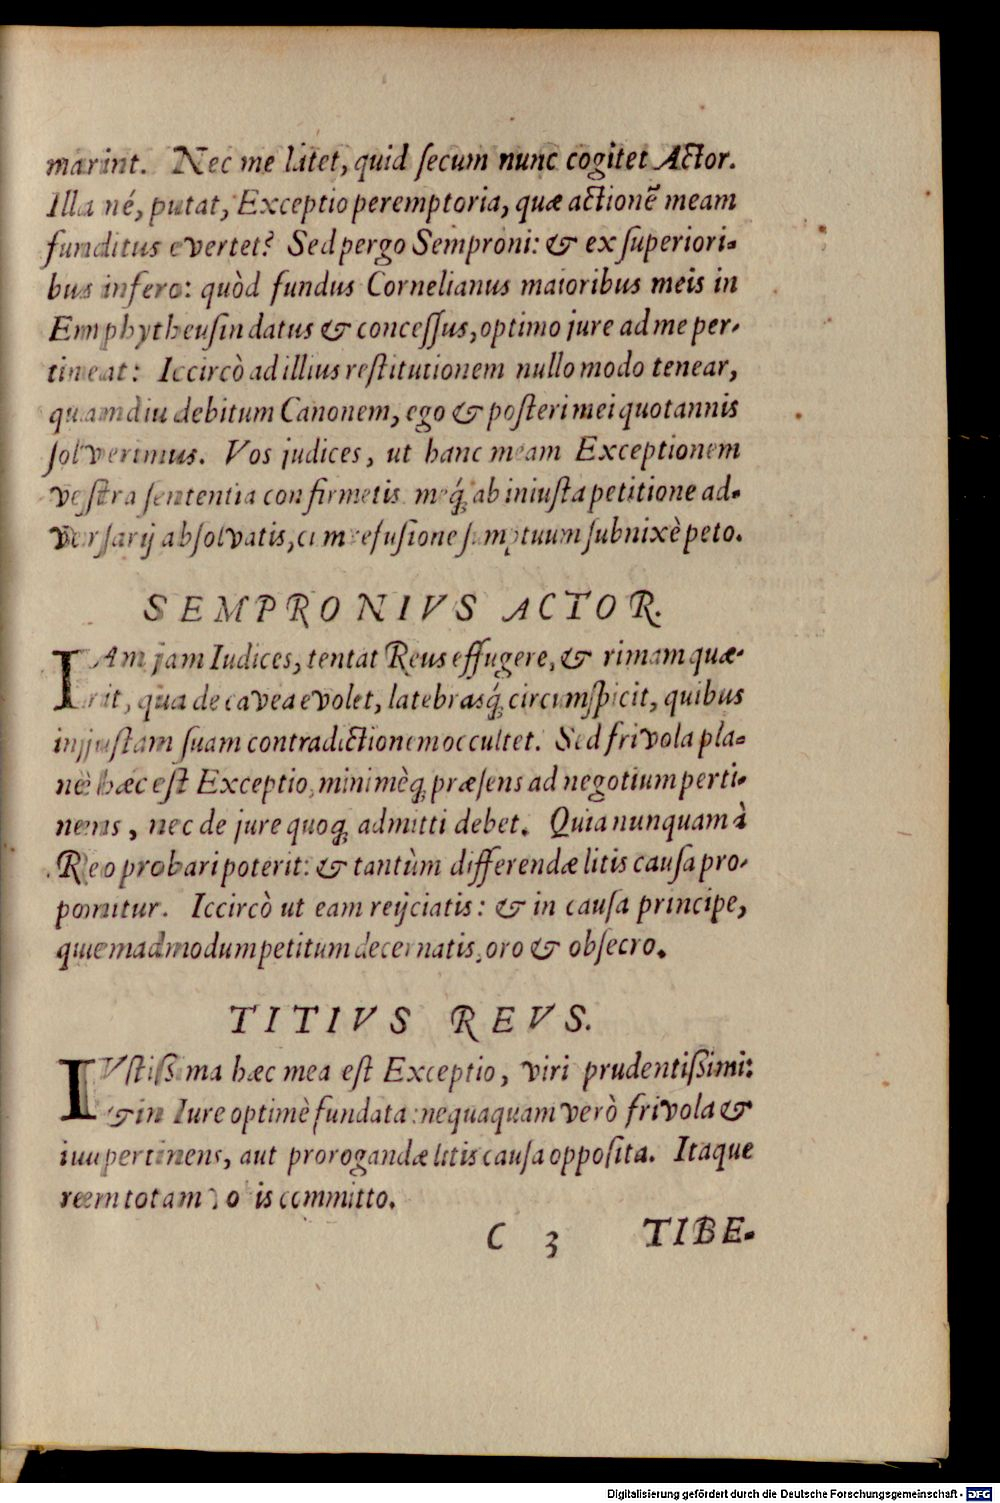 marint. Nec me latet, quid secum nunc cogitet Actor.
Illa né, putat, Exceptio peremptoria, quæ actionẽ meam
funditus evertet? Sed pergo Semproni: & ex superiori-
bus infero: quòd fundus Cornelianus maioribus meis in
Emphytheusin datus & concessus, optimo jure ad me per-
tineat: Iccircò ad illius restitutionem nullo modo tenear,
quamdiu debitum Canonem, ego & posteri mei quotannis
solverimus. Vos judices, ut hanc meam Exceptionem
vestra sententia confirmetis meq́; ab iniusta petitione ad-
versarij absolvatis, cum refusione sumptuum subnixè peto.
SEMPRONIVS ACTOR.
IAm jam Iudices, tentat Reus effugere, & rimam quæ-
rit, qua de cavea evolet, latebrasq́; circumspicit, quibus
injustam suam contradictionem occultet. Sed frivola pla-
nè hæc est Exceptio, minimèq; præsens ad negotium perti-
nens, nec de jure quoq; admitti debet. Quia nunquam à
Reo probari poterit: & tantùm differendæ litis causa pro-
ponitur. Iccircò ut eam reijciatis: & in causa principe,
quemadmodum petitum decernatis, oro & obsecro.
TITIVS REVS.
IVstissima hæc mea est Exceptio, viri prudentissimi:
& in Iure optimè fundata: nequaquam verò frivola &
impertinens, aut prorogandæ litis causa opposita. Itaque
rem totam vobis committo.
C 3 TIBE-
Digitalisierung gefördert durch die Deutsche Forschungsgemeinschaft - DFG